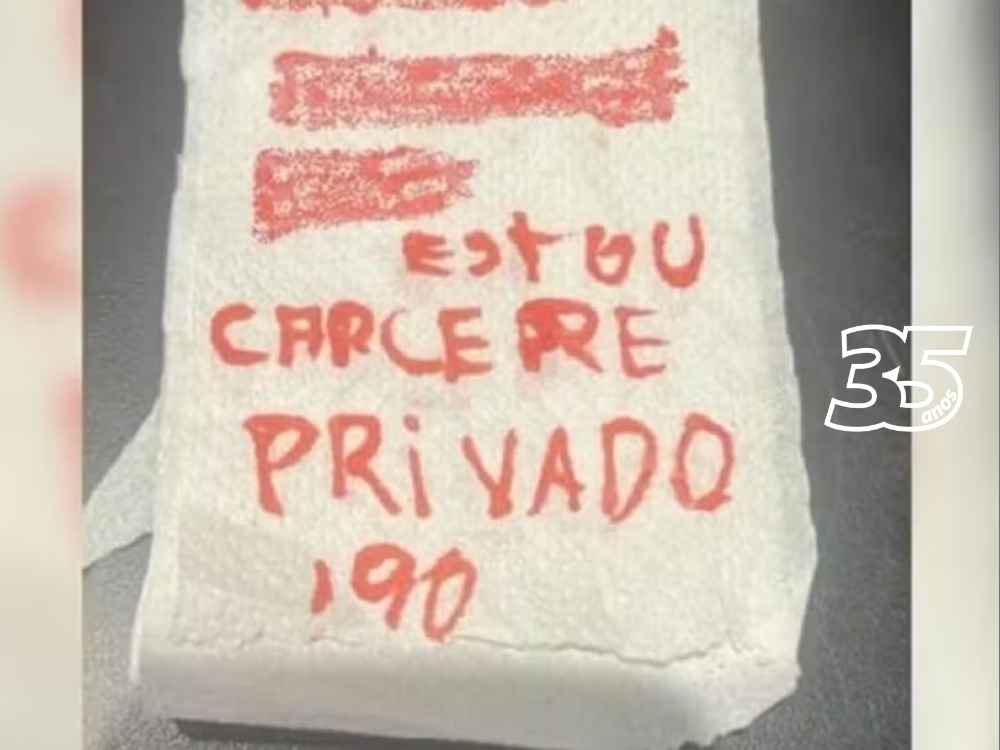 ESTOU
CARCERE
PRiVADO
190
35
anos